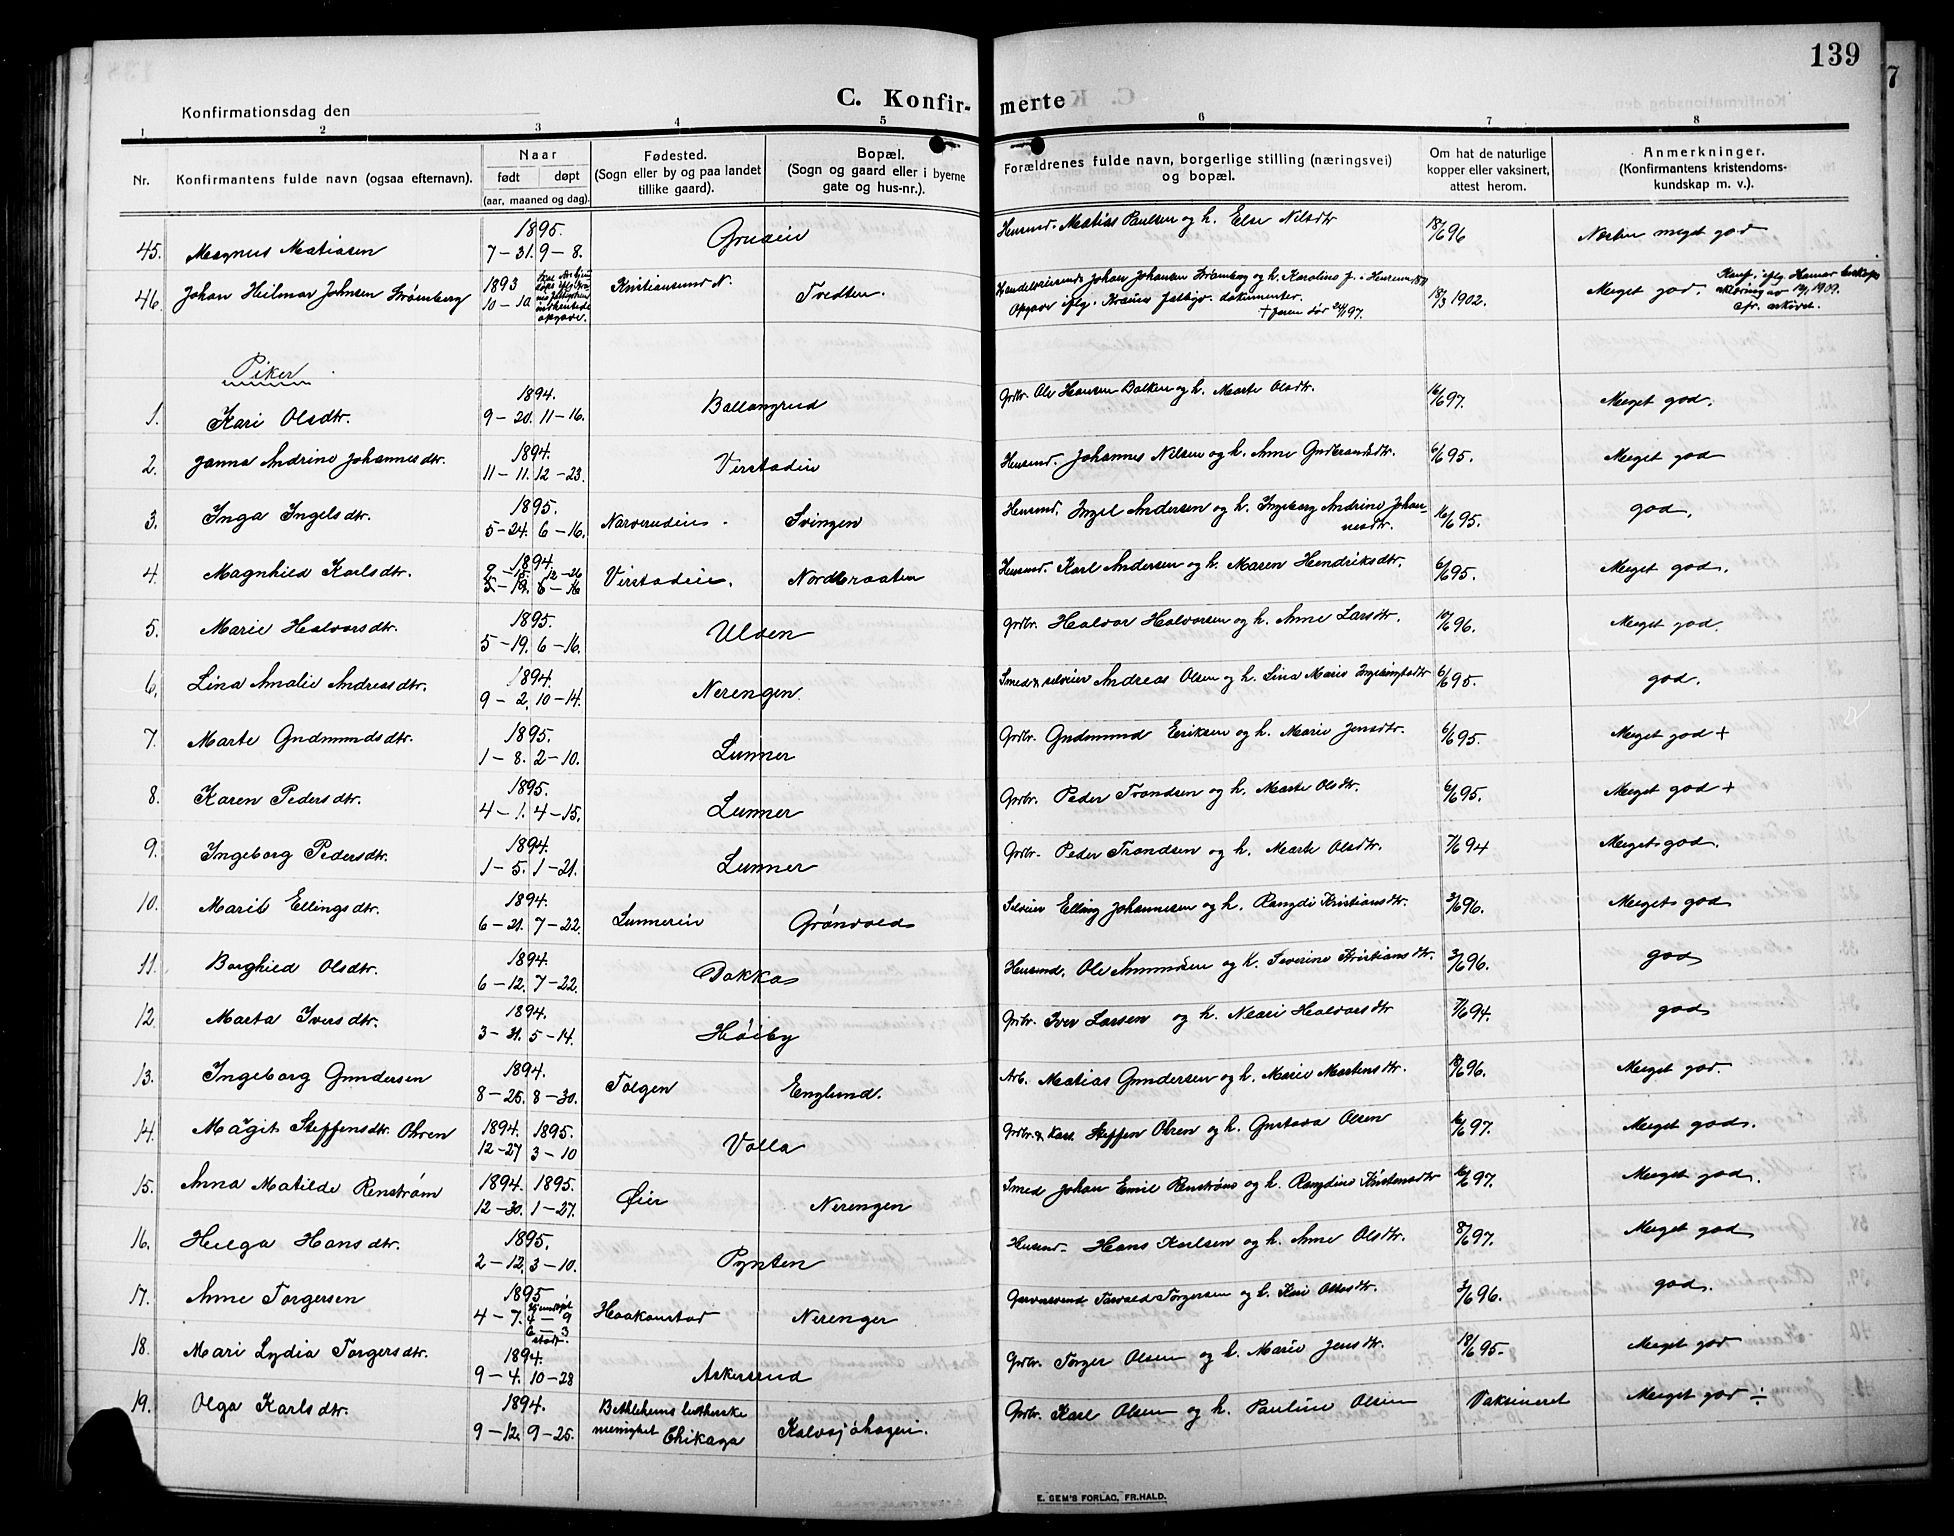 139
C. Konfir- merte
Konfirmationsdag den
1 2 3 4 5 6 7 8
Nr. Konfirmantens fulde navn (ogsaa efternavn). Naar født døpt (aar, maaned og dag). Fødested. (Sogn eller by og paa landet tillike gaard). Bopæl. (Sogn og gaard eller i byerne gate og hus-nr.). Forældrenes fulde navn, borgerlige stilling (næringsvei) og bopæl. Om hat de naturlige kopper eller vaksinert, attest herom. Anmerkninger. (Konfirmantens kristendoms-kundskap m. v.).
45. Magnus Matiasen 1895. 7-31. 9-8. Grueie Husmd. Matias Paulsen og h. Else Nilsdtr 18/6 96 Næsten meget god
46. Johan Heilmar Johnsen Strømberg 1893 10-10 Kristiansund N. Tvedten. Johan Johansen Strømberg og h. Karoline f.
Opgaver iflg. dokumenter. 18/3 1902. Meget god.
Piker
1. Kari Olsdtr. 1894. 9-20. 11-16. Ballangrud Grdbr. Ole Hansen Balken og h. Marte Olsdtr. 16/6 97. Meget god.
2. Janna Andrine Johannesdtr. 1894. 11-11. 12-23. Virstadeie Husmd. Johannes Nilsen og h. Anne Gudbrandsdtr. 6/6 95. Meget god
3. Inga Ingelsdtr. 1895. 5-24. 6-16. Narverudeie. Svingen Husmd. Ingel Andersen og h. Ingeborg Andrine Johan-
nesdtr. 16/6 95. god.
4. Magnhild Karlsdtr. 1894. Virstadeie. Nordbraaten Husmd. Karl Andersen og h. Maren Hendriksdtr. 6/6 95. Meget god.
5. Marie Halvorsdtr. 1895. 5-19. 6-16. Ulven Grdbr. Halvor Halvorsen og h. Anne Larsdtr. 18/6 96. Meget god.
6. Lina Amalie Andreasdtr. 1894. 9-2. 10-14. Nerengen Smed & selveier Andreas Olsen og h. Lina Marie 6/6 95. god.
7. Marte Gudmundsdtr. 1895. 1-8. 2-10. Lunner Grdbr. Gudmund Eriksen og h. Marie Jensdtr. 6/6 95. Meget god +
8. Karen Pedersdtr. 1895. 4-1. 4-15. Lunner Grdbr. Peder Trondsen og h. Marte Olsdtr. 6/6 95. Meget god +
9. Ingeborg Pedersdtr. 1894. 1-5. 1-21. Lunner Grdbr. Peder Trondsen og h. Marte Olsdtr. 7/6 94 Meget god.
10. Marie Ellingsdtr. 1894. 6-21. 7-22. Lunnereie Grønvold Selveier Elling Johannesen og h. Rangdi Kristiansdtr. 3/6 96. Meget god
11. Borghild Olsdtr. 1894. 6-12. 7-22. Dokka Husmd. Ole Amundsen og h. Severine Kristiansdtr. 3/6 96. god
12. Marta Iversdtr. 1894. 3-31. 5-14. Høiby Grdbr. Iver Larsen og h. Mari Halvorsdtr 7/6 94. god
13. Ingeborg Gundersen 1894. 8-25. 8-30. Tolgen Englund. Arb. Matias Gundersen og h. Marie Martensdtr. 18/6 96. Meget god.
14. Magit Steffensdtr. Ohren 1894. 1895. 12-27 3-10 Volla Grdbr. & Steffen Ohren og h. Gustava Olsen 16/6 97. Meget god.
15. Anna Matilde Renstrøm 1894. 1895. 12-30. 1-27. Øier Nerengen Smed Johan Emil Renstrøm og h. Rangdine Kristensdtr 16/6 97. Meget god.
16. Helga Hansdtr. 1895. 2-12. 3-10. Pynten Husmd. Hans Karlsen og h. Anne Olsdtr. 8/6 97. Meget god
17. Anne Torgersen 1895 4-7. Haakenstad Nerengen Torvald Torgersen og h. Kari 3/6 96. god.
18. Mari Lydia Torgersdtr. 1894. 9-4. 10-28 Askersrud Grdbr. Torger Olsen og h. Marie Jensdtr. 18/6 95. Meget god
19. Olga Karlsdtr. 1894. 9-12. 9-25. Bethlehems lutherske menighet Chikago Kalvsjøhagen. Grdbr. Karl Olsen og h. Pauline Olsen Vaksineret Meget god ÷
E. SEM'S FORLAG, FR.HALD.